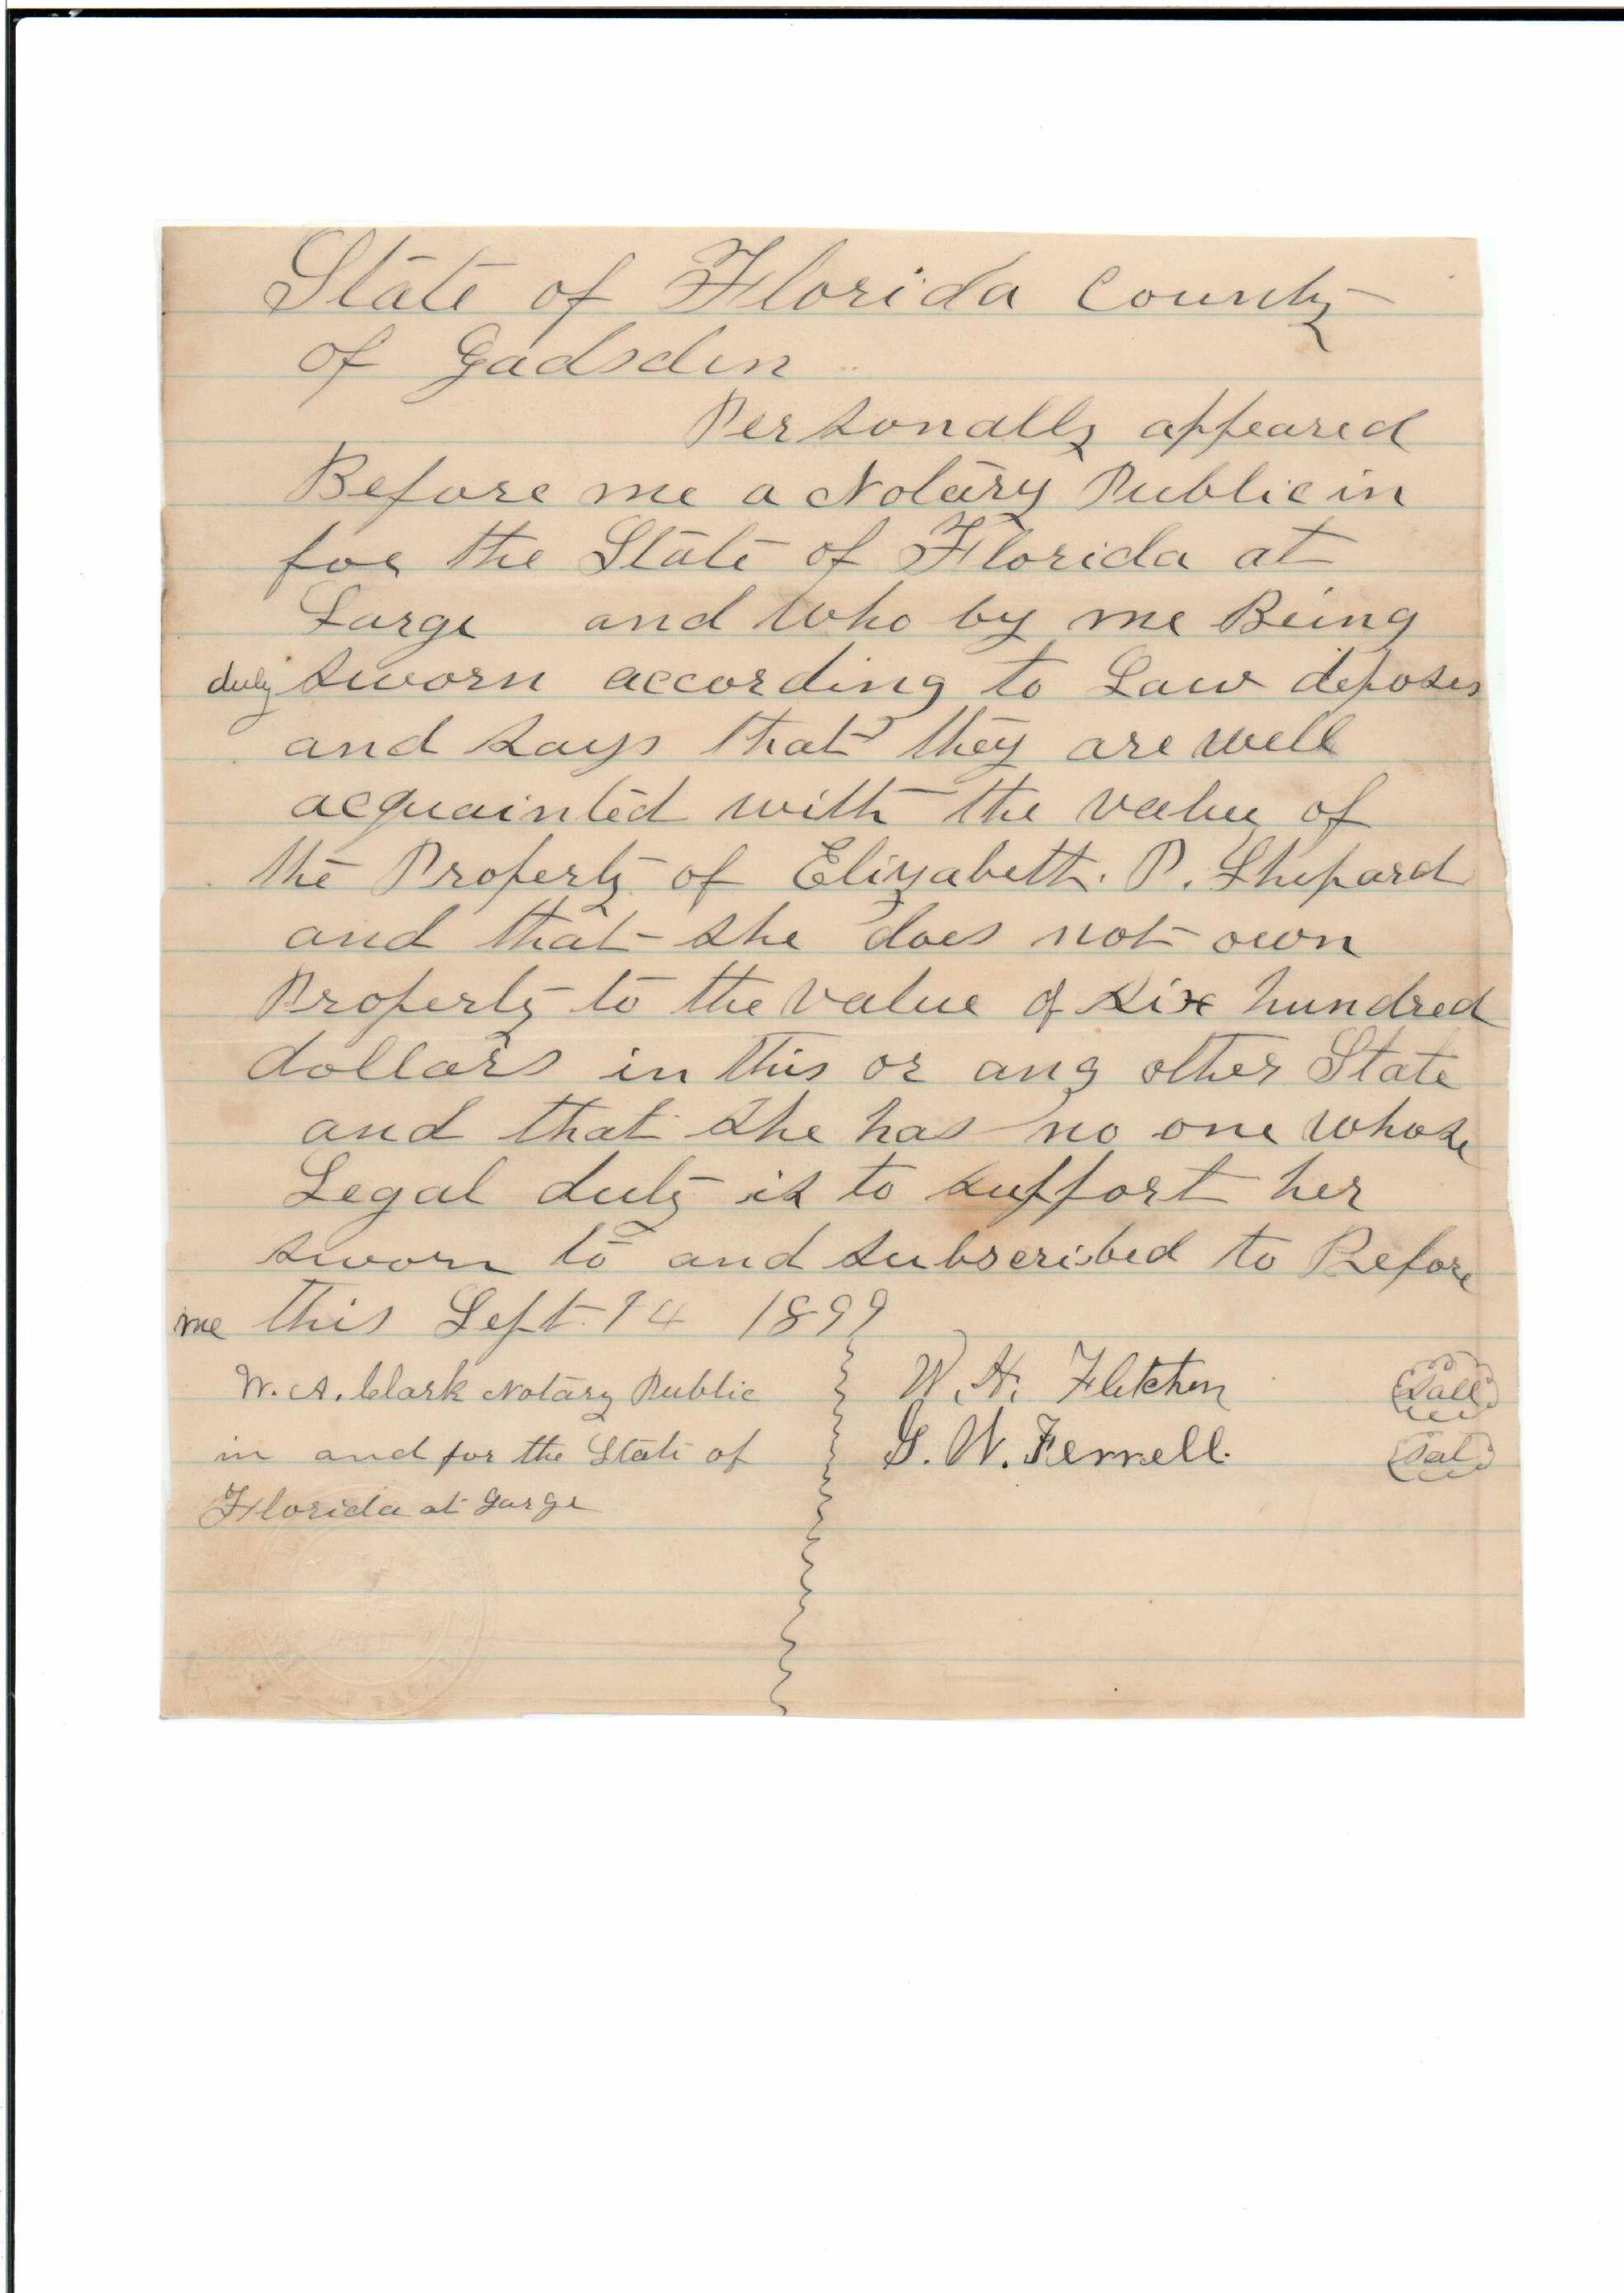 State of Florida County
of Gadsden
Personally appeared
Before me a Notary Public in
for the State of Florida at
Large and who by me Being
duly sworn according to Law deposes
and says that they are well
acquainted with the value of
the Property of Elizabeth. P. Shepard
and that she does not own
Property to the value of six hundred
dollars in this or any other State
and that she has no one whose
Legal duty is to support her
sworn to and subscribed to Before
me this Sept 14 1899
W. A. Clark Notary Public
in and for the State of
Florida at Large
W. H. Fletcher
G. W. Ferrell.